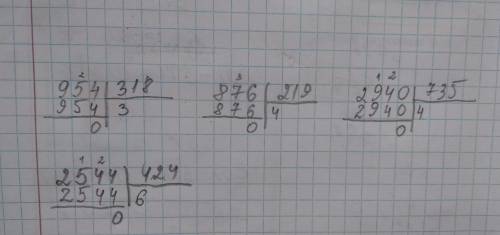 2
954 318
954 3
0
3
876 219
876 4
0
1 2
2940 735
2940 4
0
1 2
2544 424
2544 6
0